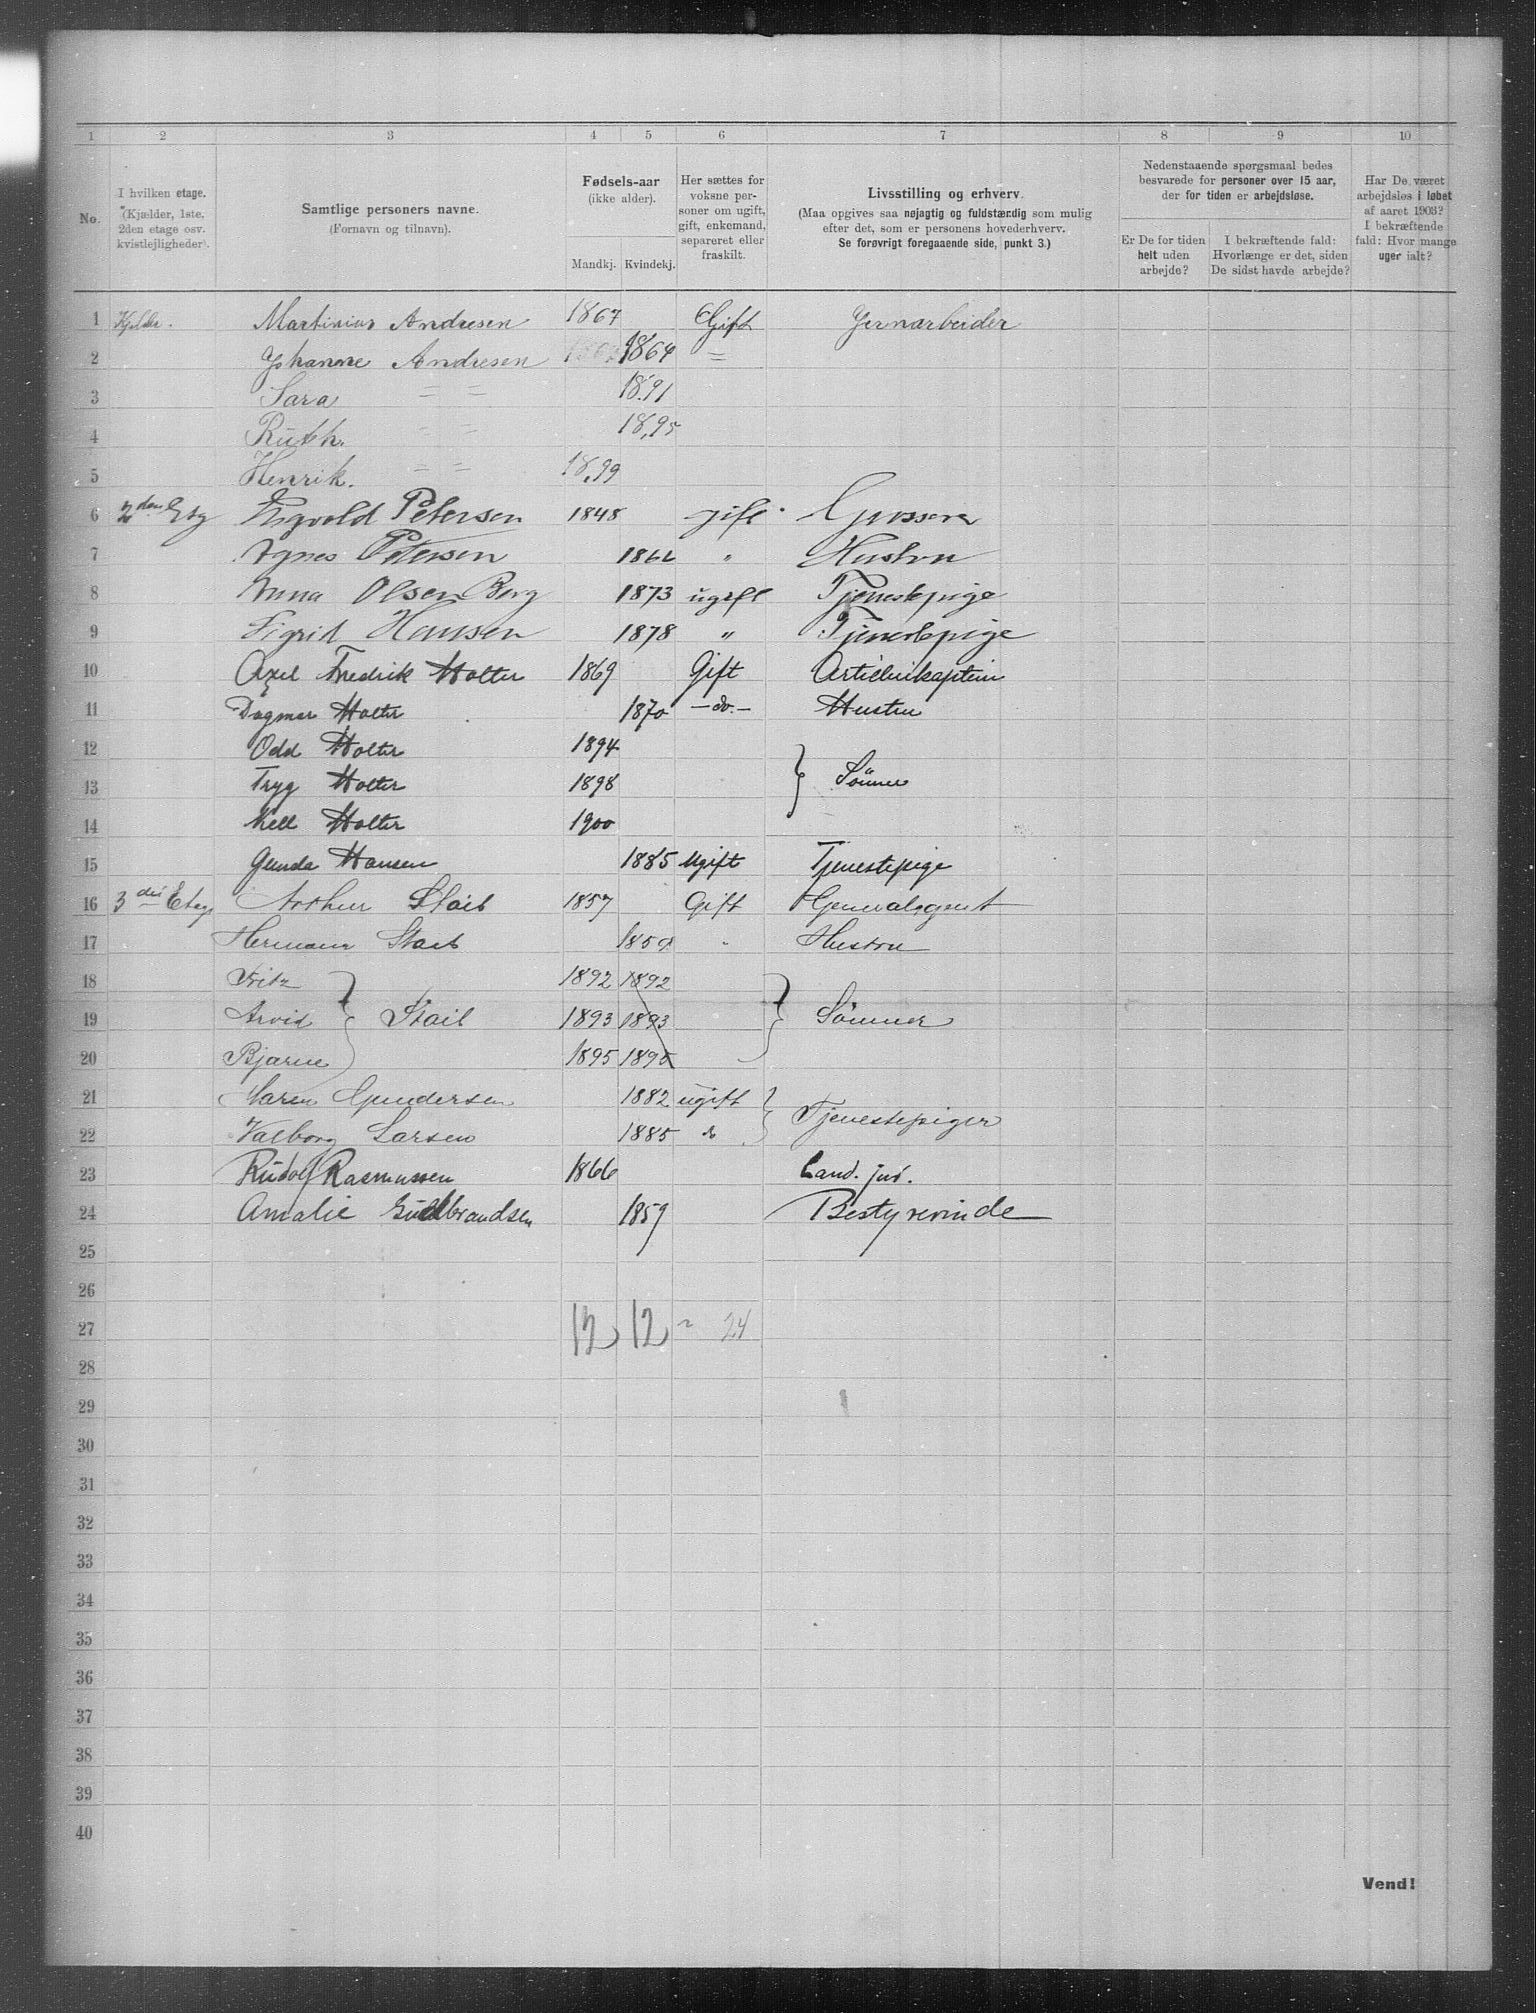 1 2 3 4 5 6 7 8 9 10
No.
I hvilken etage.
(Kjælder, 1ste,
2den etage osv.
kvistlejligheder).
Samtlige personers navne.
(Fornavn og tilnavn).
Fødsels-aar
(ikke alder).
Mandkj. Kvindekj.
Her sættes for
voksne per-
soner om ugift,
gift, enkemand,
separeret eller
fraskilt.
Livsstilling og erhverv.
(Maa opgives saa nøjagtig og fuldstændig som mulig
efter det, som er personens hovederhverv.
Se forøvrigt foregaaende side, punkt 3.)
Nedenstaaende spørgsmaal bedes
besvarede for personer over 15 aar,
der for tiden er arbejdsløse.
Er De for tiden
helt uden
arbejde?
I bekræftende fald:
Hvorlænge er det, siden
De sidst havde arbejde?
Har De været
arbejdsløs i løbet
af aaret 1903?
I bekræftende
fald: Hvor mange
uger ialt?
1 Kjelder. Martinius Andresen 1867 Gift Jernarbeider
2 Johanne Andresen 1864 =
3 Sara = = 1891
4 Ruth. = = 1895
5 Henrik. = = 1899
6 2den Etg Sigvold Petersen 1848 gift Grosserer
7 Agnes Petersen 1862 " Hustru
8 Anna Olsen Berg 1873 ugift Tjenestepige
9 Sigrid Hansen 1878 " Tjenestepige
10 Axel Fredrik Holter 1869 Gift Artillerikaptein
11 Dagmar Holter 1870 - do. - Hustru
12 Odd Holter 1894
13 Tryg Holter 1898 } Sönner
14 Kell Holter 1900
15 Gunda Hansen 1885 Ugift Tjenestepige
16 3die Etage Arthur Stoib 1857 Gift Generalagent
17 Hermane Stoib 1859 " Hustru
18 Fritz 1892 1892
19 Arvid } Stoib 1893 1893 } Sönner
20 Bjarne 1895 1895
21 Maren Gundersen 1882 ugift } Tjenestepiger
22 Valborg Larsen 1885 do
23 Rudolf Rasmussen 1866 Cand. jur.
24 Amalie Guldbrandsen 1859 Bestyrerinde
25
26
27 12 12 = 24
28
29
30
31
32
33
34
35
36
37
38
39
40
Vend!